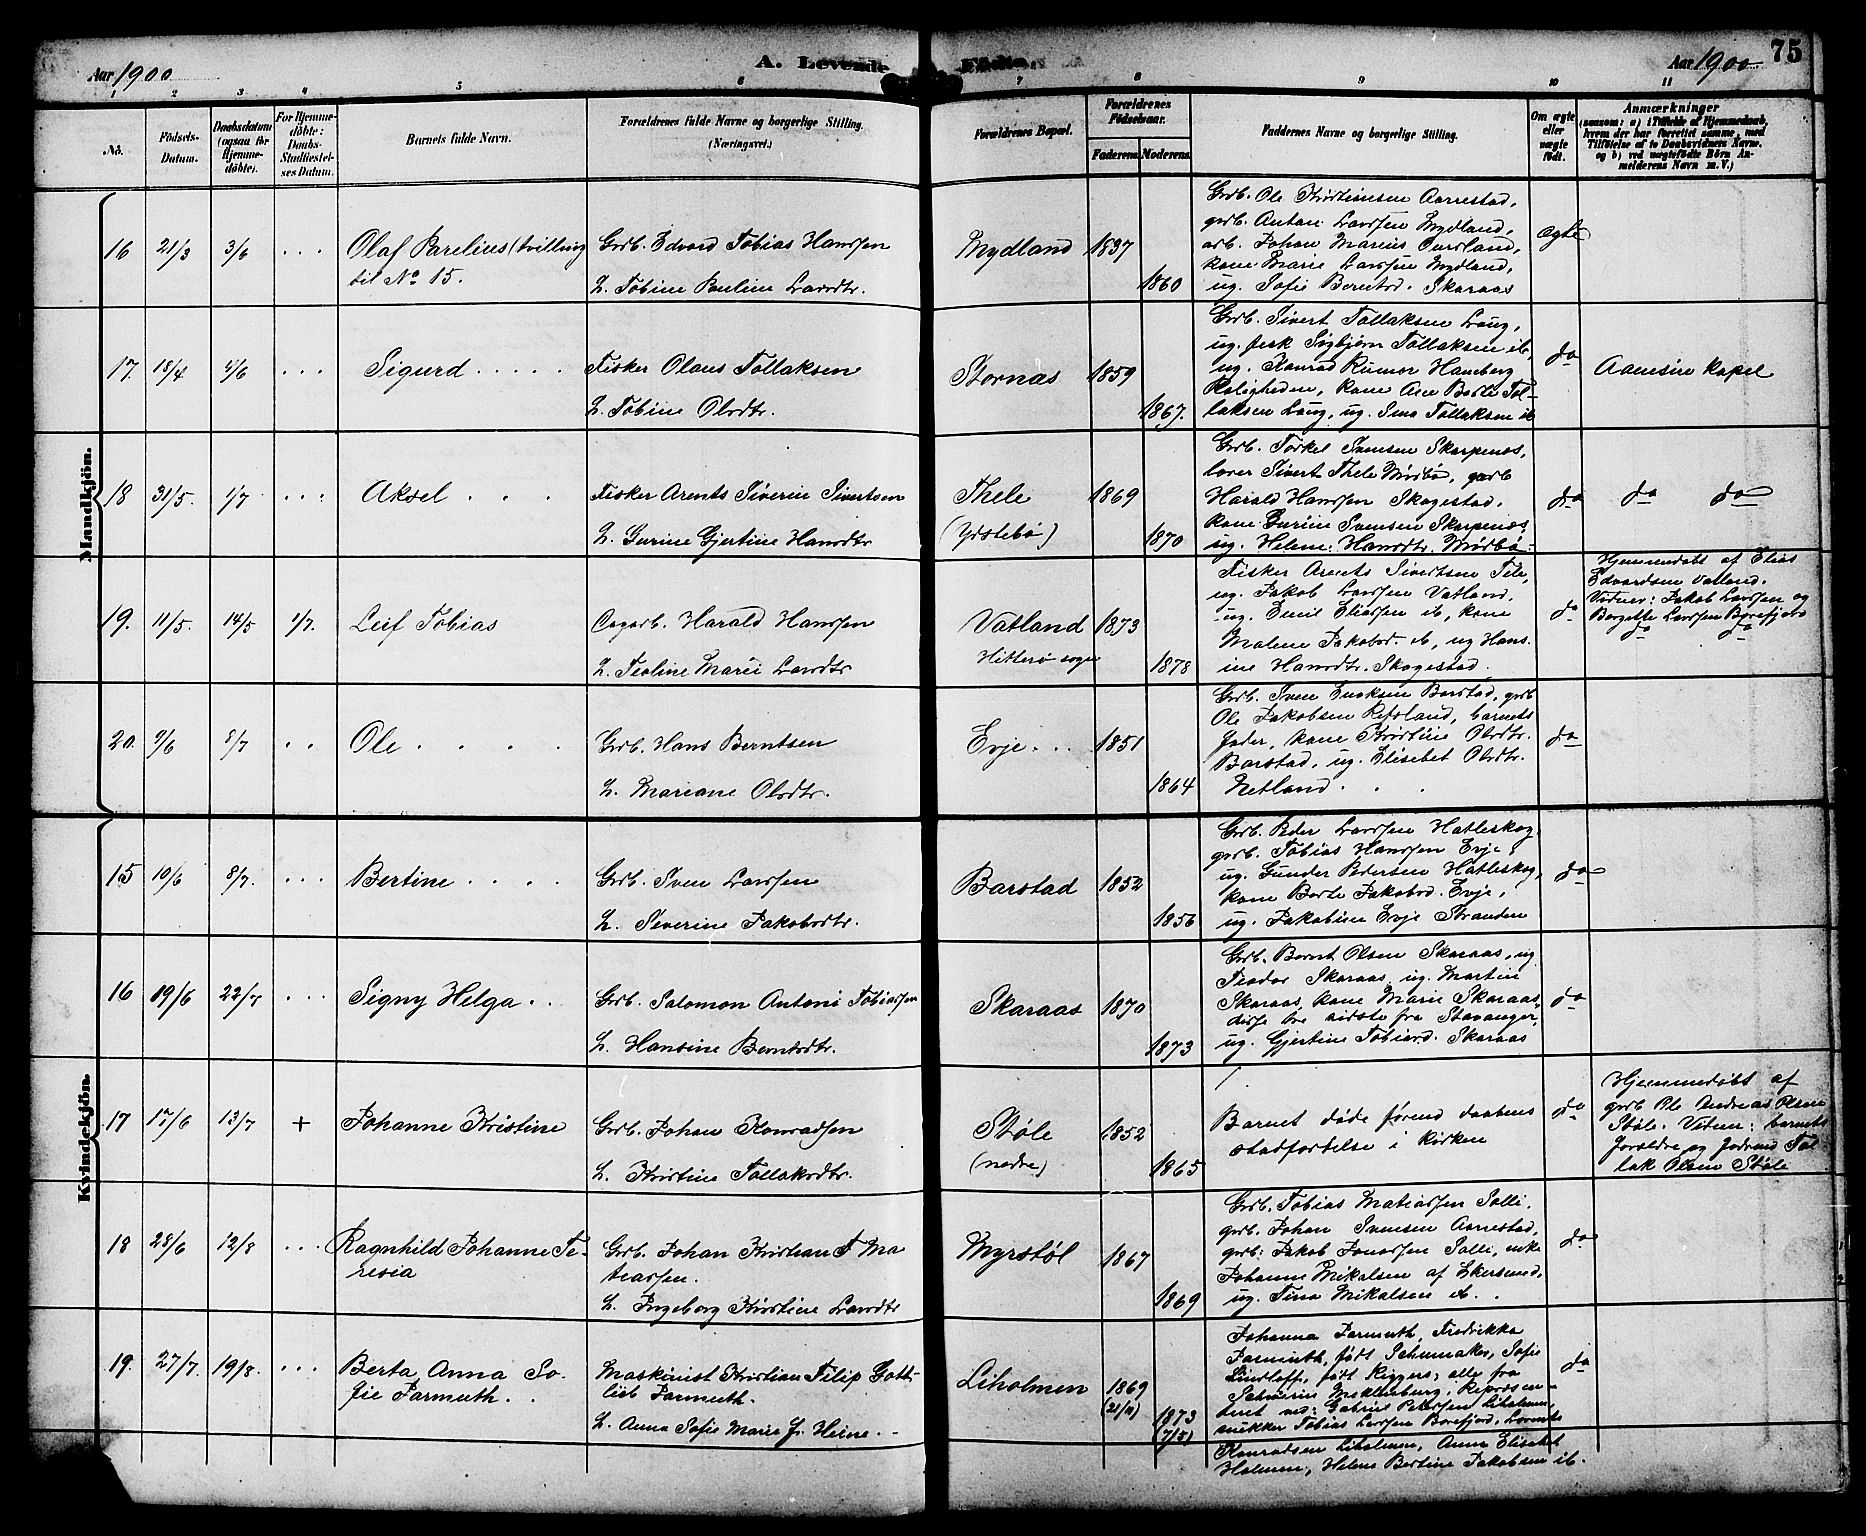 Aar 1900
A. Levende Fødte.
Aar 1900
75
1 2 3 4 5 6 7 8 9 10 11
No.
Fødsels-
Datum.
Daabsdatum
(ogsaa for
Hjemme-
døbte).
For Hjemme-
døbte:
Daabs-
Stadfæstel-
ses Datum.
Barnets fulde Navn.
Forældrenes fulde Navne og borgerlige Stilling.
(Næringsvei.)
Forældrenes Bopæl.
Forældrenes
Fødselsaar.
Faderens. Moderens.
Faddernes Navne og borgerlige Stilling.
Om ægte
eller
uægte
født.
Anmærkninger
(saasom: a) i Tilfælde af Hjemmedaab,
hvem der har forrettet samme, med
Tilføielse af to Daabsvidners Navne,
og b) ved uægtefødte Børn An-
melderens Navn m. V.)
Mandkjøn.
16 21/3 3/6 . . .
Olaf Parelius (tvilling
til No 15.
Grb. Edvard Tobias Hanssen
H. Tobine Pauline Larsdtr.
Mydland 1837
1860
Grb. Ole Kristiansen Aarrestad,
grb. Anton Larssen Mydland,
arb. Johan Marius Omland,
kone Marie Larssen Mydland,
ug. Sofie Berntsd. Skaraas
ægte
17. 18/4 4/6 . . .
Sigurd . . . . .
Fisker Olaus Tollaksen
H. Tobine Olsdtr.
Stornas 1859
1867.
Grb. Sivert Tollaksen Laug,
ug. fisk Sigbjørn Tollaksen ib,
ug. Konrad Rumor Hamberg
Roligheden, kone Ane Borte Tol-
laksen Laug, ug. Sina Tollaksen ib
do
Aanesire kapel
18 31/5. 1/7 . . .
Aksel . . .
Fisker Arents Siverin Sivertsen
H. Gurine Gjertine Hansdtr
Thele
(Ydstebø)
1869
1870
Grb. Torkel Svensen Skarpenes,
lærer Sivert Thele Mørbø, garb
Harald Hanssen Skagestad,
kone Gurine Svensen Skarpenes,
ug. Helene Hansdtr. Mørbø.
do
do do
19. 11/5. 14/5 1/7.
Leif Tobias
Oogarb. Harald Hanssen
H. Teoline Marie Larsdtr
Vatland
Hitterø sogn
1873
1878
Fisker Arents Sivertsen Tele,
ug. Jakob Larssen Vatland,
ug. Emil Eliassen ib, kone
Malene Jakobsd ib, ug Hans-
ine Hansdtr. Skagestad.
do
Hjemmedøbt af Elias
Edvardsen Vatland.
Vidner: Jakob Larssen og
Borgette Larssen Borefjord
do do
20. 9/6 8/7 . .
Ole . . . .
Grb. Hans Berntsen
H. Mariane Olsdtr.
Evje . . . 1851
1864
Grb. Sven Enoksen Barstad, grb
Ole Jakobsen Refsland, barnets
fader, kone Kristine Olsdtr.
Barstad, ug. Elisabet Olsdtr.
Netland . . .
do
Kvindekjøn.
15 10/6 8/7. . . .
Bertine . . . .
Grb. Sven Larssen
H. Severine Jakobsdtr.
Barstad 1852
1856
Grb. Peder Larssen Hatleskog,
grb. Tobias Hanssen Evje,
ug. Gunder Pedersen Hatleskog,
kone Borte Jakobsd. Evje,
ug. Jakobine Evje Stranden
do
16 19/6 22/7 . . .
Signy Helga . .
Grb. Salomon Antoni Tobiassen
H. Hansine Berntsdtr.
Skaraas 1870
1873
Grb. Bernt Olsen Skaraas, ug
Teodor Skaraas, ug. Martin
Skaraas, kone Marie Skaraas,
disse tre sidste fra Stavanger,
ug. Gjertine Tobiasd. Skaraas
do
17 17/6 13/7 +
Johanne Kristine
Grb. Johan Konradsen
H. Kristine Tollaksdtr.
Støle
(nedre)
1852
1865
Barnet døde førend daabens
stadfæstelse i kirken
do
Hjemmedøbt af
grb Ole Andreas Olsen
Støle. Vitner: barnets
foreldre og jordmor Tol-
lak Olsen Støle
18 28/6 12/8 . . .
Ragnhild Johanne Te-
resia
Grb. Johan Kristian T Ma
teassen.
H. Ingeborg Kristine Larsdtr
Myrstøl 1867
1869
Grb. Tobias Matiassen Solli,
grb. Johan Svensen Aarrestad,
grb. Jakob Jonassen Solli, enke
Johanne Mikalsen af Ekersund,
ug. Tina Mikalsen ib. .
do
19. 27/7. 19/8. . . .
Berta Anna So-
fie Parmuth. .
Maskinist Kristian Filip Gott-
lieb Parmuth.
H. Anna Sofie Marie f. Heine . .
Liholmen 1869
(21/11)
1873
(7/5)
Johanna Parmuth, Fredrikka
Parmuth, født Schumaker, Sofie
Lindloff, født Riggers, alle fra
Schwerin Meklenburg, Repræsen-
teret ved: Gabriel Petersen Liholmen,
snikker Tobias Larssen Borefjord, Lorents
Konradsen Liholmen, Anna Elisabet
Holmen, Helene Bertine Jakobsen ib.
do